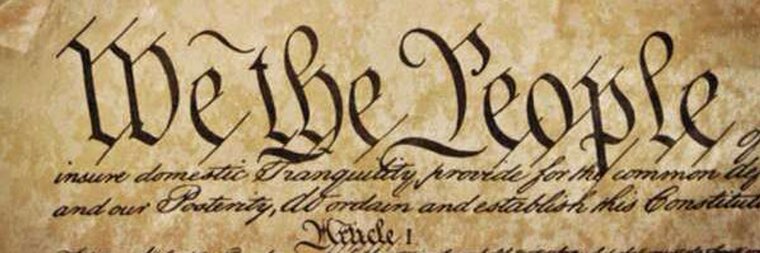 We the People
insure domestic Tranquility, provide for the common
and our Posterity, do ordain and establish this
Article I